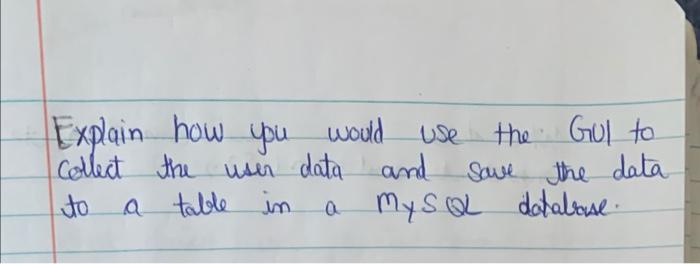 Explain how you would use the GUI to
Collect the user data and save the data
to a table in a MySQL database.